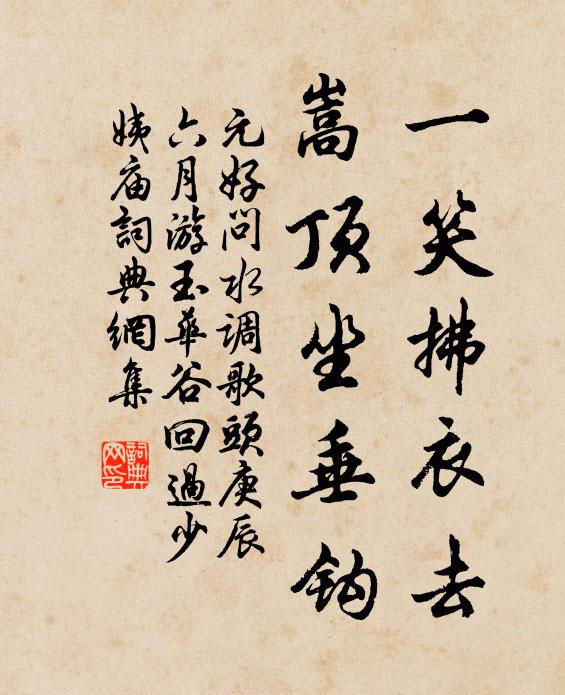 一笑拂衣去
嵩顶坐垂钩
元好问水调歌頭庚辰
六月游玉華谷回過少
姨庙詞典網集
詞典网印